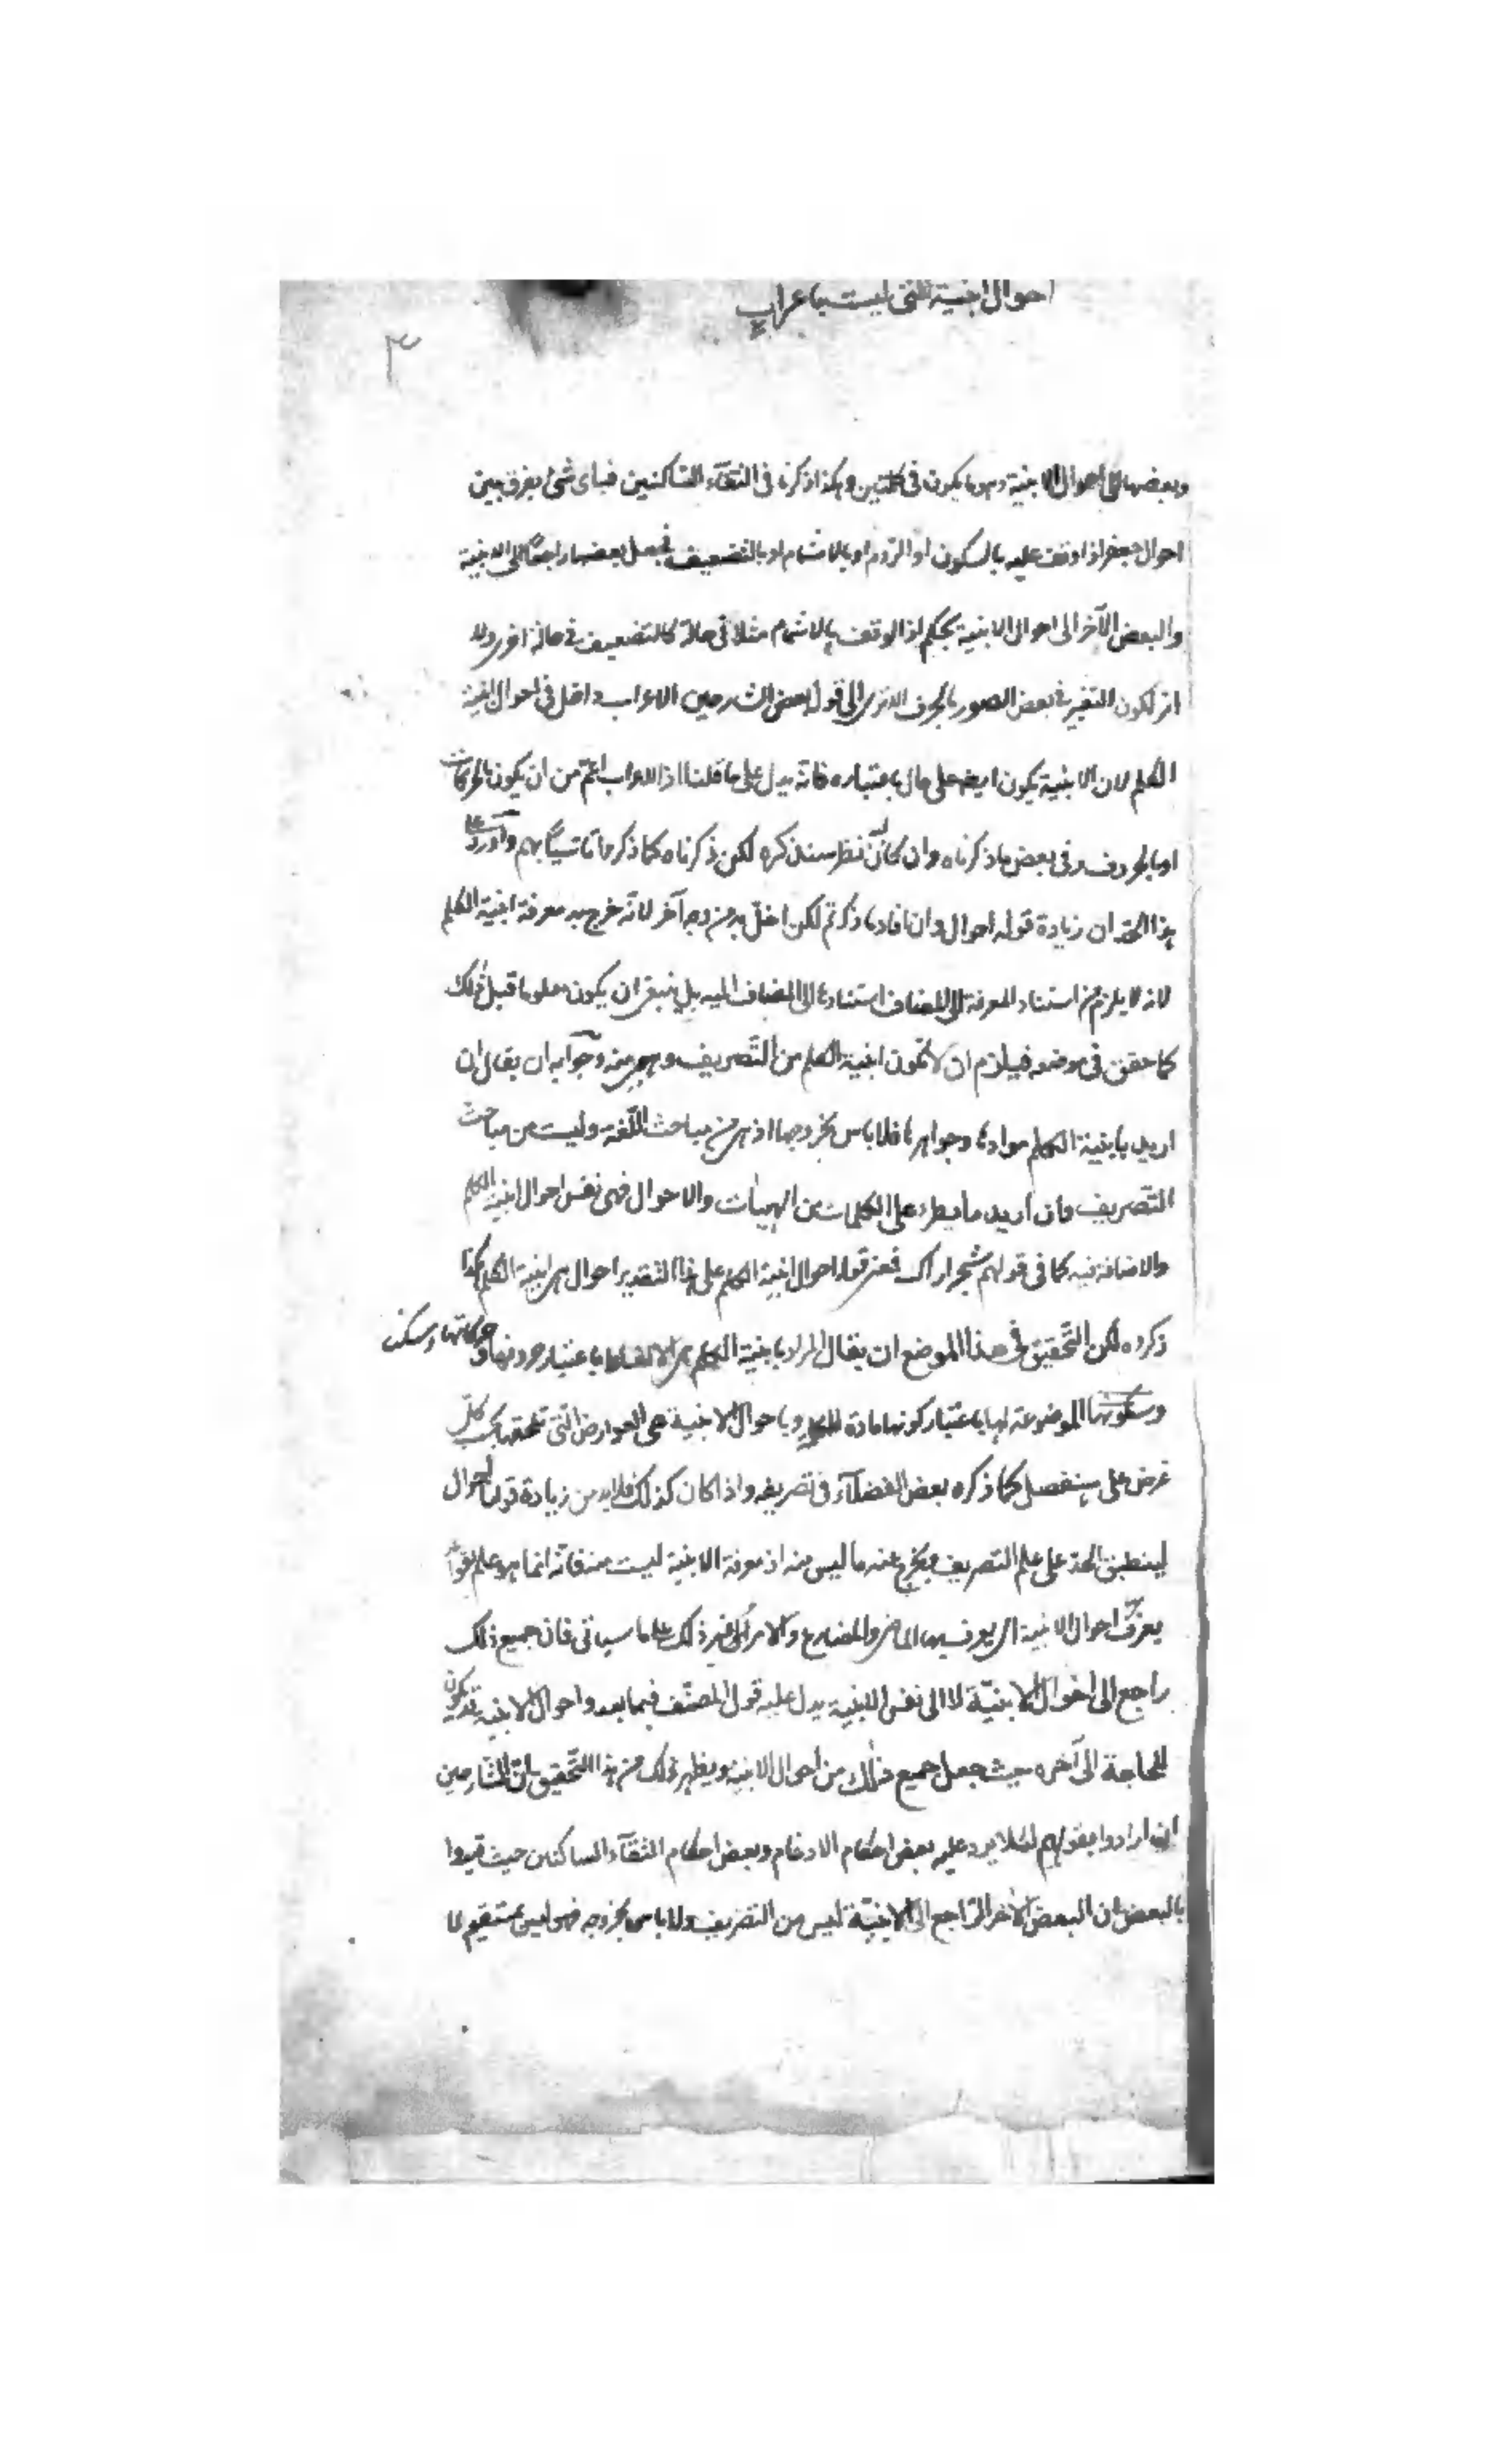 احوال ابنية التى ليست باعراب
٣
وبعضها الى احوال الابنية وهو ما يكون فى كلمتين وهكذا ذكرنا فى التقاء الساكنين فباى شئ يفرق بين
احوال جعفر اذا وقف عليه بالسكون او الروم او بالاشمام او بالتضعيف فجعل بعضها راجعا الى الابنية
والبعض الآخر الى احوال الابنية تحكم اذ الوقف بالاشمام مثلا فى حالة كالتضعيف فى حالة اخرى ولا
لكون التغير فى بعض الصور بالحرف الا ترى الى قول بعض الشارحين الاعراب داخل فى احوال ابنية
الكلم لان الابنية يكون ايضا على حال باعتباره فانه يدل على ما قلنا اذ الاعراب اعم من ان يكون بالحركات
او بالحروف وفى بعض ما ذكرناه وان كان نظر سنذكره لكن ذكرناه كما ذكر تأسيا بهم واورد على
هذا الحد ان زيادة قوله احوال وان افاد ما ذكرتم لكن اخل به من وجه آخر لانه خرج به معرفة ابنية الكلم
لانه لا يلزم من استناد المعرفة الى المضاف استنادها الى المضاف اليه بل ينبغى ان يكون معلوما قبل ذلك
كما حقق فى موضعه فيلزم ان لا تكون ابنية الكلم من التصريف وهى منه وجوابه ان يقال ان
اريد بابنية الكلم موادها وجواهرها فلا باس بخروجها اذ هى من مباحث اللغة وليست من مباحث
التصريف وان اريد ما يطرء على الكلمات من الهيئات والاحوال فهى نفس احوال ابنية الكلم
والاضافة فيه كما فى قولهم شجر اراك فمعنى قوله احوال ابنية الكلم على هذا التقدير احوال هى ابنية الكلم كذا
ذكره لكن التحقيق فى هذا الموضع ان يقال المراد بابنية الكلم هى الالفاظ باعتبار حروفها و حركاتها وسكنا
وسكونها الموضوعة لها باعتبار كونها مادة للكلم وباحوال الابنية هى العوارض التى تلحقها بحسب كل
غرض على سنفصل كما ذكره بعض الفضلاء فى تصريفه واذا كان كذلك فلا بد من زيادة قولنا احوال
لينطبق الحد على علم التصريف ويخرج عنه ما ليس منه اذ معرفة الابنية ليست منه فانه انما هو علم بقواعد
يعرف احوال الابنية اى يعرف بها الماضى والمضارع والامر الى غير ذلك على ما سياتى فان جميع ذلك
راجع الى احوال الابنية لا الى نفس الابنية يدل عليه قول المصنف فيما بعد واحوال الابنية قد يكون
للحاجة الى آخره حيث جعل جميع ذلك من احوال الابنية ويظهر ذلك من هذا التحقيق بان الشارحين
ان ارادوا بقولهم لئلا يرد عليه بعض احكام الادغام وبعض احكام التقاء الساكنين حيث قيدوا
بالبعض ان البعض الآخر الراجع الى الابنية ليس من التصريف ولا باس بخروجه فهو ليس بمستقيم لما